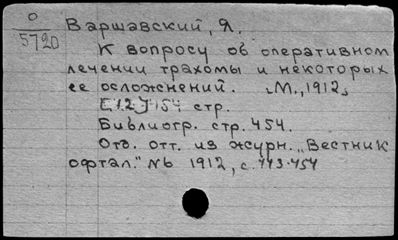 О
5720
Варшавский, Я.
К вопросу об оперативном
лечении трахомы и некоторых
ее осложнений. [М., 1912]
[12] 454 стр.
Библиогр. стр. 454.
Отд. отт. из журн. „Вестник
офтал." №6 1912, с. 443-454